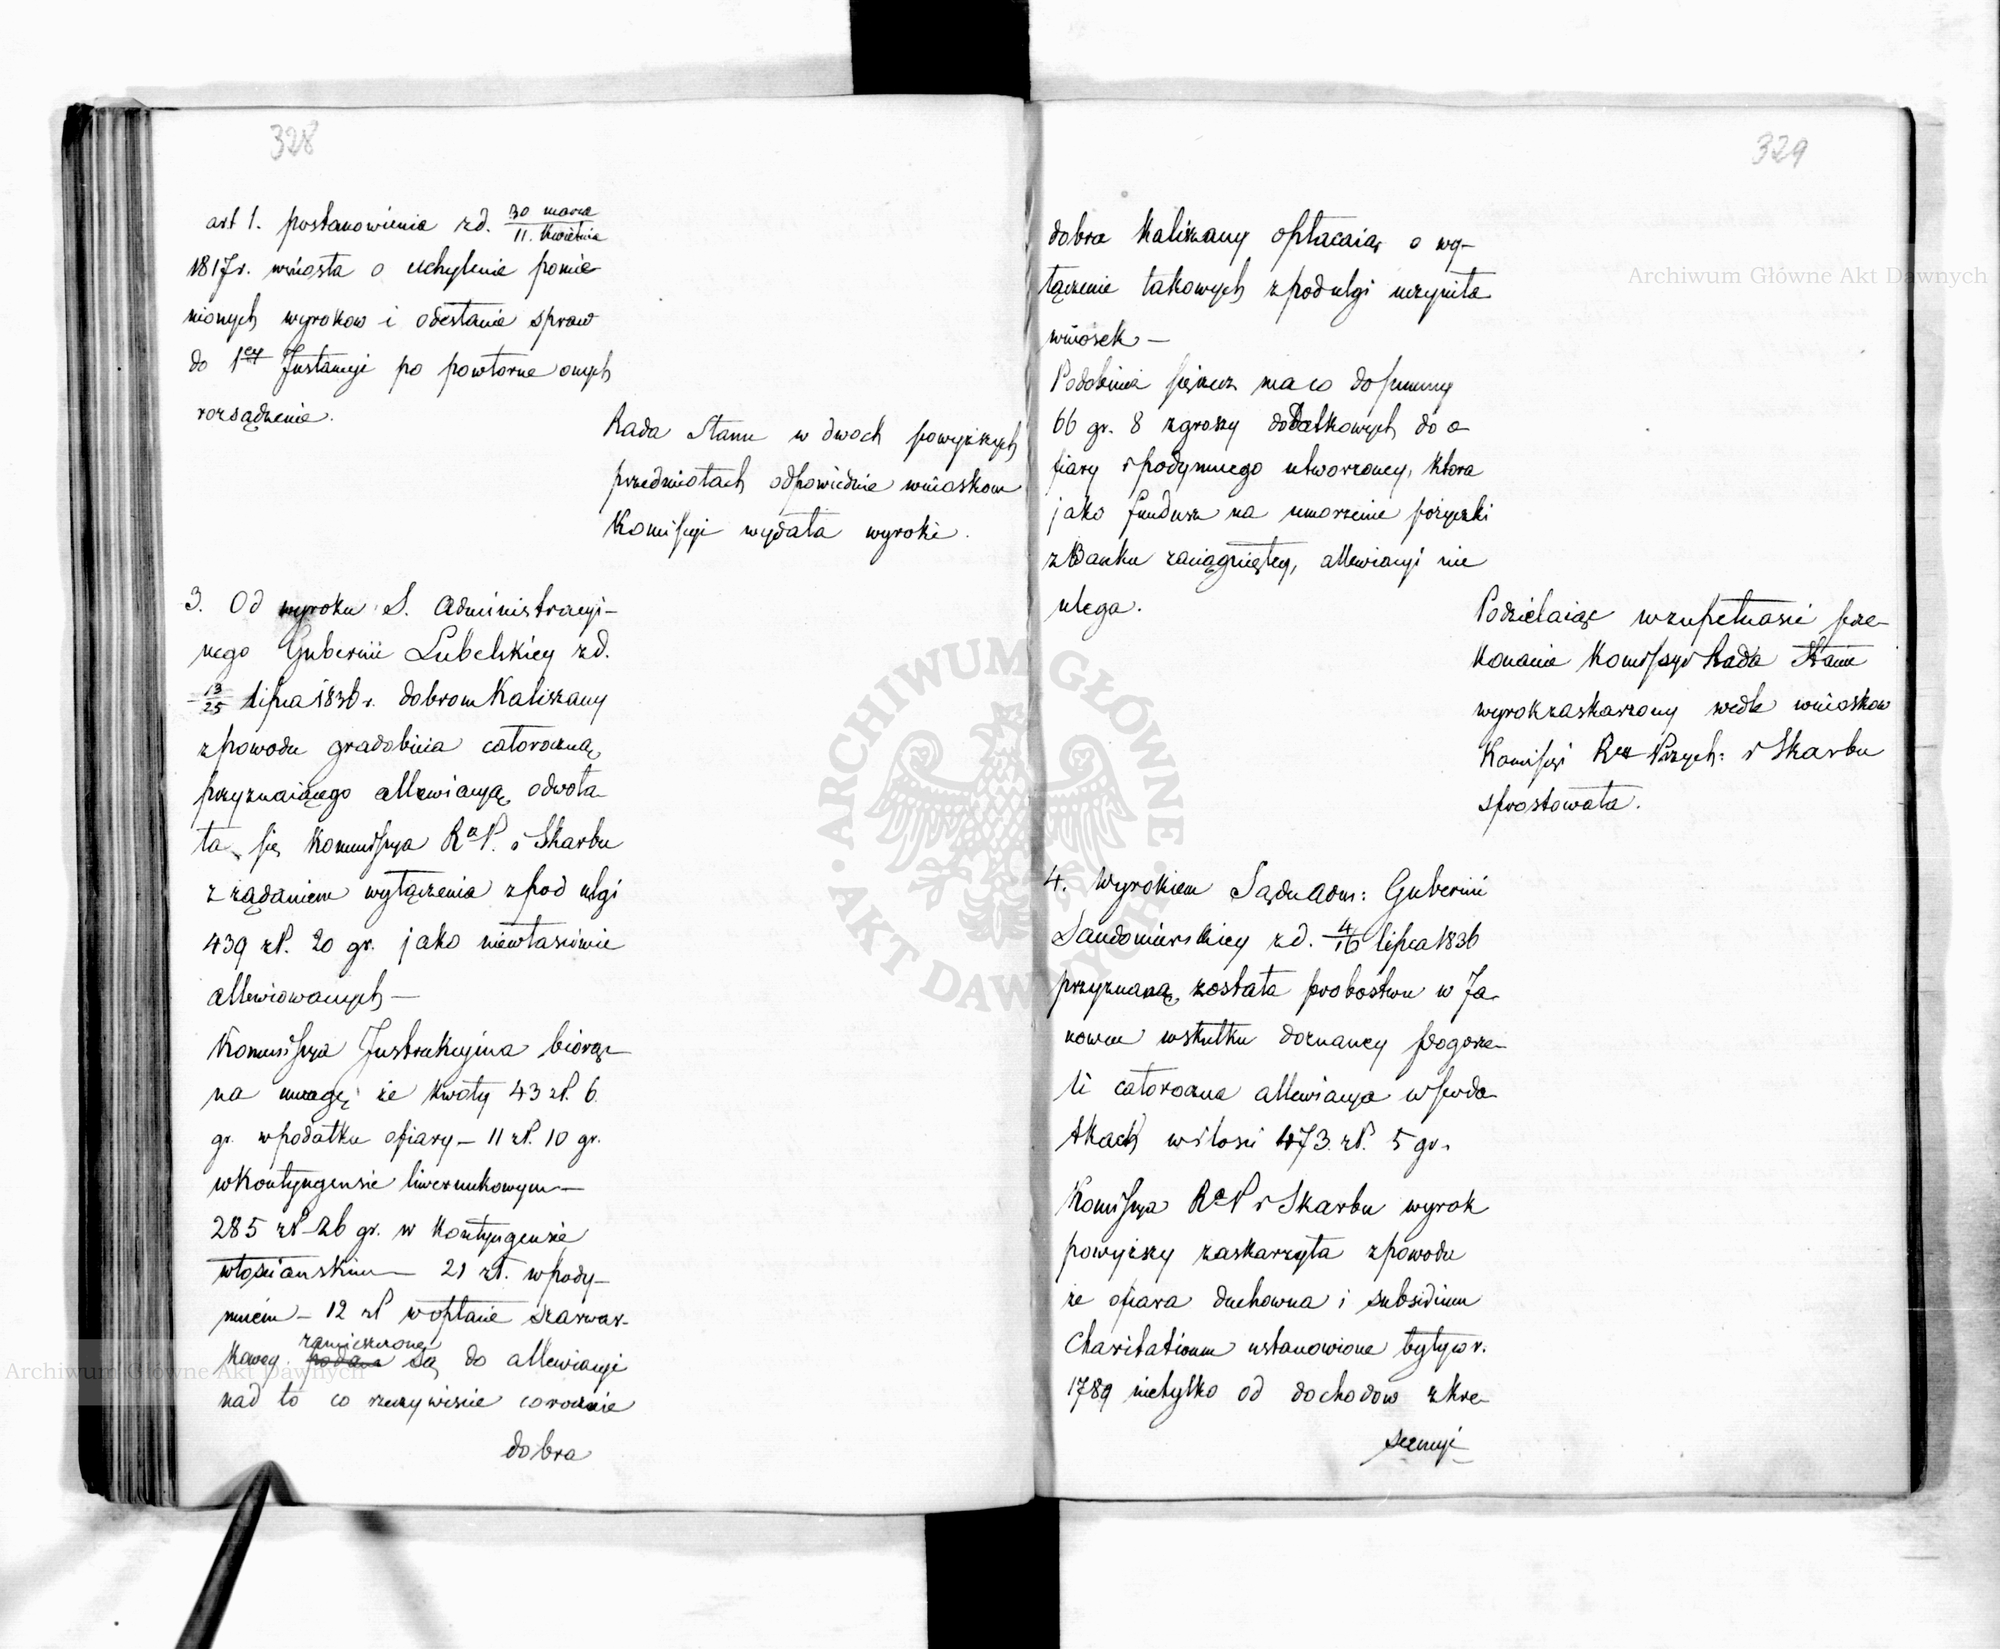 328
art 1. postanowienia zd. 30 marca / 11. Kwietnia
1817r. wniosła o uchylenie pomie-
nionych wyrokow i odesłanie spraw
do 1ey Instancyi po powtorne onych
rozsądzenie.
Rada Stanu w dwoch powyższych
przedmiotach odpowiednie wnioskom
Komissyi wydała wyroki.
3. Od wyroku S. Administracyi-
nego Gubernii Lubelskiey zd.
13/25 Lipca 1836 r. dobrom Kaliszany
zpowodu gradobicia całoroczną
przyznaiącego allewiacyą odwoła-
ła się Kommissya R.P. i Skarbu
z rządaniem wyłączenia zpod ulgi
439 zł. 20 gr. jako niewłasciwie
allewiowanych —
Kommissya Instrukcyina biorąc
na uwagę że kwoty 43 zł. 6.
gr. wpodatku ofiary — 11 zł. 10 gr.
wKontyngensie liwerunkowym —
285 zł 26 gr. w Kontyngensie
włościanskim — 21 zł. wpody-
mnem — 12 zł wopłacie szarwar-
kowey zamieszczone podane są do allewiacyi
nad to co rzeczywiscie corocznie
dobra
329
dobra Kaliszany opłacaią o wy-
łączenie takowych zpod ulgi uczyniła
wniosek —
Podobnie się rzecz ma co do summy
66 gr. 8 zgroszy dodatkowych do o-
fiary i podymnego utworzoney, ktora
jako fundusz na umorzenie pożyczki
zBanku zaciągnięty, allewiacyi nie
ulega.
Podzielaiąc wzupełności prze-
konanie Komissyi Rada Stanu
wyrok zaskarzony wedle wnioskow
Komissyi Rz Przych: i Skarbu
sprostowała.
4. Wyrokiem Sądu Adm: Gubernii
Sandomierskiey zd. 4/16 lipca 1836
przyznaną została probostwu w Ja-
nowcu wskutku doznaney pogorze-
li całoroczna allewiacya w poda-
tkach wilosci 473. zł. 5 gr.
Komissya R.P i Skarbu wyrok
powyższy zaskarzyła zpowodu
że ofiara duchowna i subsidium
Charitativum ustanowione były w r.
1789 nietylko od dochodow z kre-
scencyi
Archiwum Główne Akt Dawnych
Archiwum Główne Akt Dawnych
· ARCHIWUM GŁÓWNE · AKT DAWNYCH